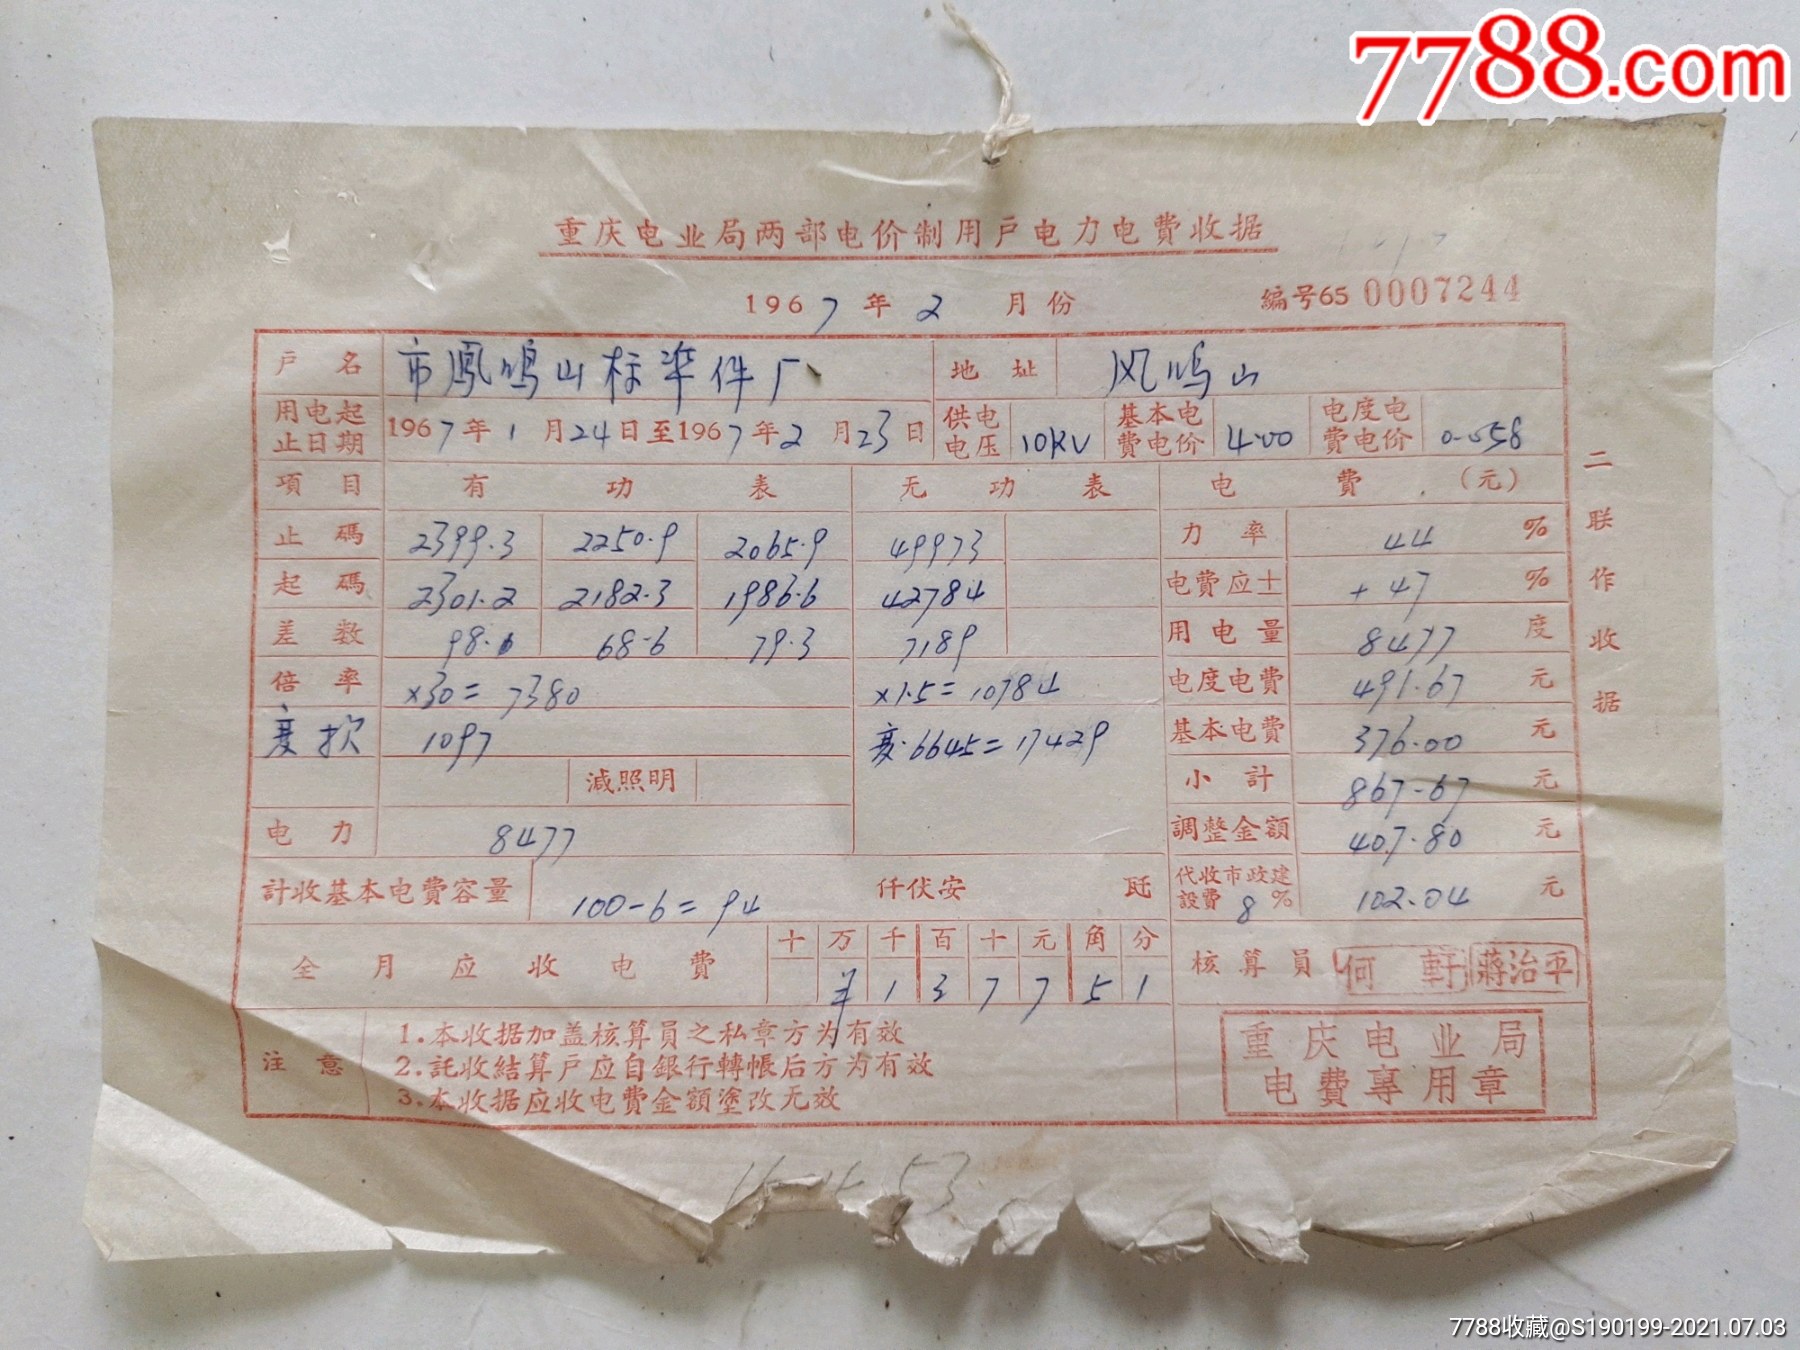 7788.com
重庆电业局两部电价制用戶电力电費收据
1967年2月份
編号65 0007244
戶名 市鳳鳴山标準件厂 地址 风鳴山
用电起止日期 1967年1月24日至1967年2月23日 供电电压 10KV 基本电費电价 4.00 电度电費电价 0.058
項目 有功表 无功表 电費(元)
止碼 2399.3 2250.9 2065.9 49973 力率 44 %
起碼 2301.2 2182.3 1986.6 42784 电費应± +47 %
差数 98.1 68.6 79.3 7189 用电量 8477 度
倍率 ×30=7380 ×1.5=10784 电度电費 491.67 元
变损 1097 变.6645=17429 基本电費 376.00 元
減照明 小計 867.67 元
电力 8477 調整金額 407.80 元
計收基本电費容量 100-6=94 仟伏安 瓩 代收市政建設費 8% 102.04 元
全月应收电費 十万千百十元角分 核算員 何軒 蔣治平
¥137751
注意
1.本收据加盖核算員之私章方为有效
2.託收結算戶应自銀行轉帳后方为有效
3.本收据应收电費金額塗改无效
重庆电业局
电費專用章
二联作收据
7788收藏@S190199-2021.07.03